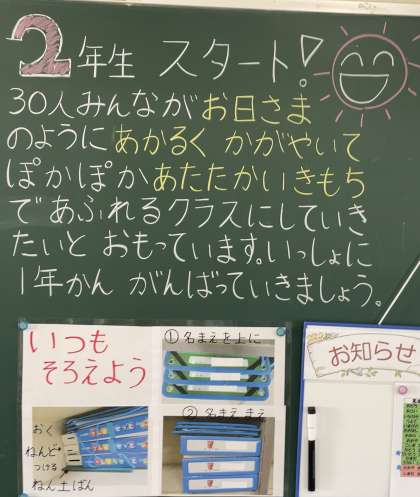 2年生 スタート!
30人みんながお日さま
のようにあかるく かがやいて
ぽかぽかあたたかいきもち
であふれるクラスにしていき
たいと おもっています。いっしょに
1年かん がんばっていきましょう。
いつも
そろえよう
①名まえを上に
②名まえ まえ
おく
ねんど
つける
ねん土ばん
お知らせ